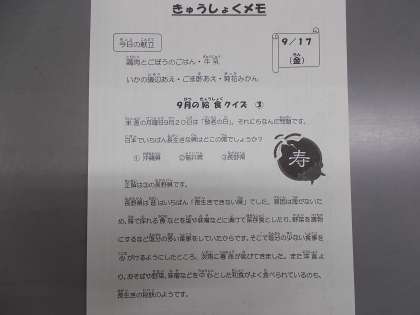 きゅうしょくメモ
今日の献立
9／17
（金）
鶏肉とごぼうのごはん・牛乳
いかの磯辺あえ・ごま酢あえ・冷凍みかん
9月の給食クイズ ③
来週の月曜日9月20日は「敬老の日」。それにちなんだ問題です。
日本でいちばん長生きな県はどこの県でしょうか？
① 沖縄県 ②福井県 ③長野県
寿
正解は③の長野県です。
長野県は昔はいちばん「長生きできない県」でした。原因は海がないた
め、海で採れる魚などを塩や味噌などに漬けて保存食としたり、野菜を漬物
にするなど塩分の多い食事をしていたからです。そこで塩分の少ない食事を
心がけるようにしたところ、次第に寿命が延びてきました。また
り、おそばや野菜、味噌などを中心とした和食がよく食べられているのも、
長生きの秘訣のようです。